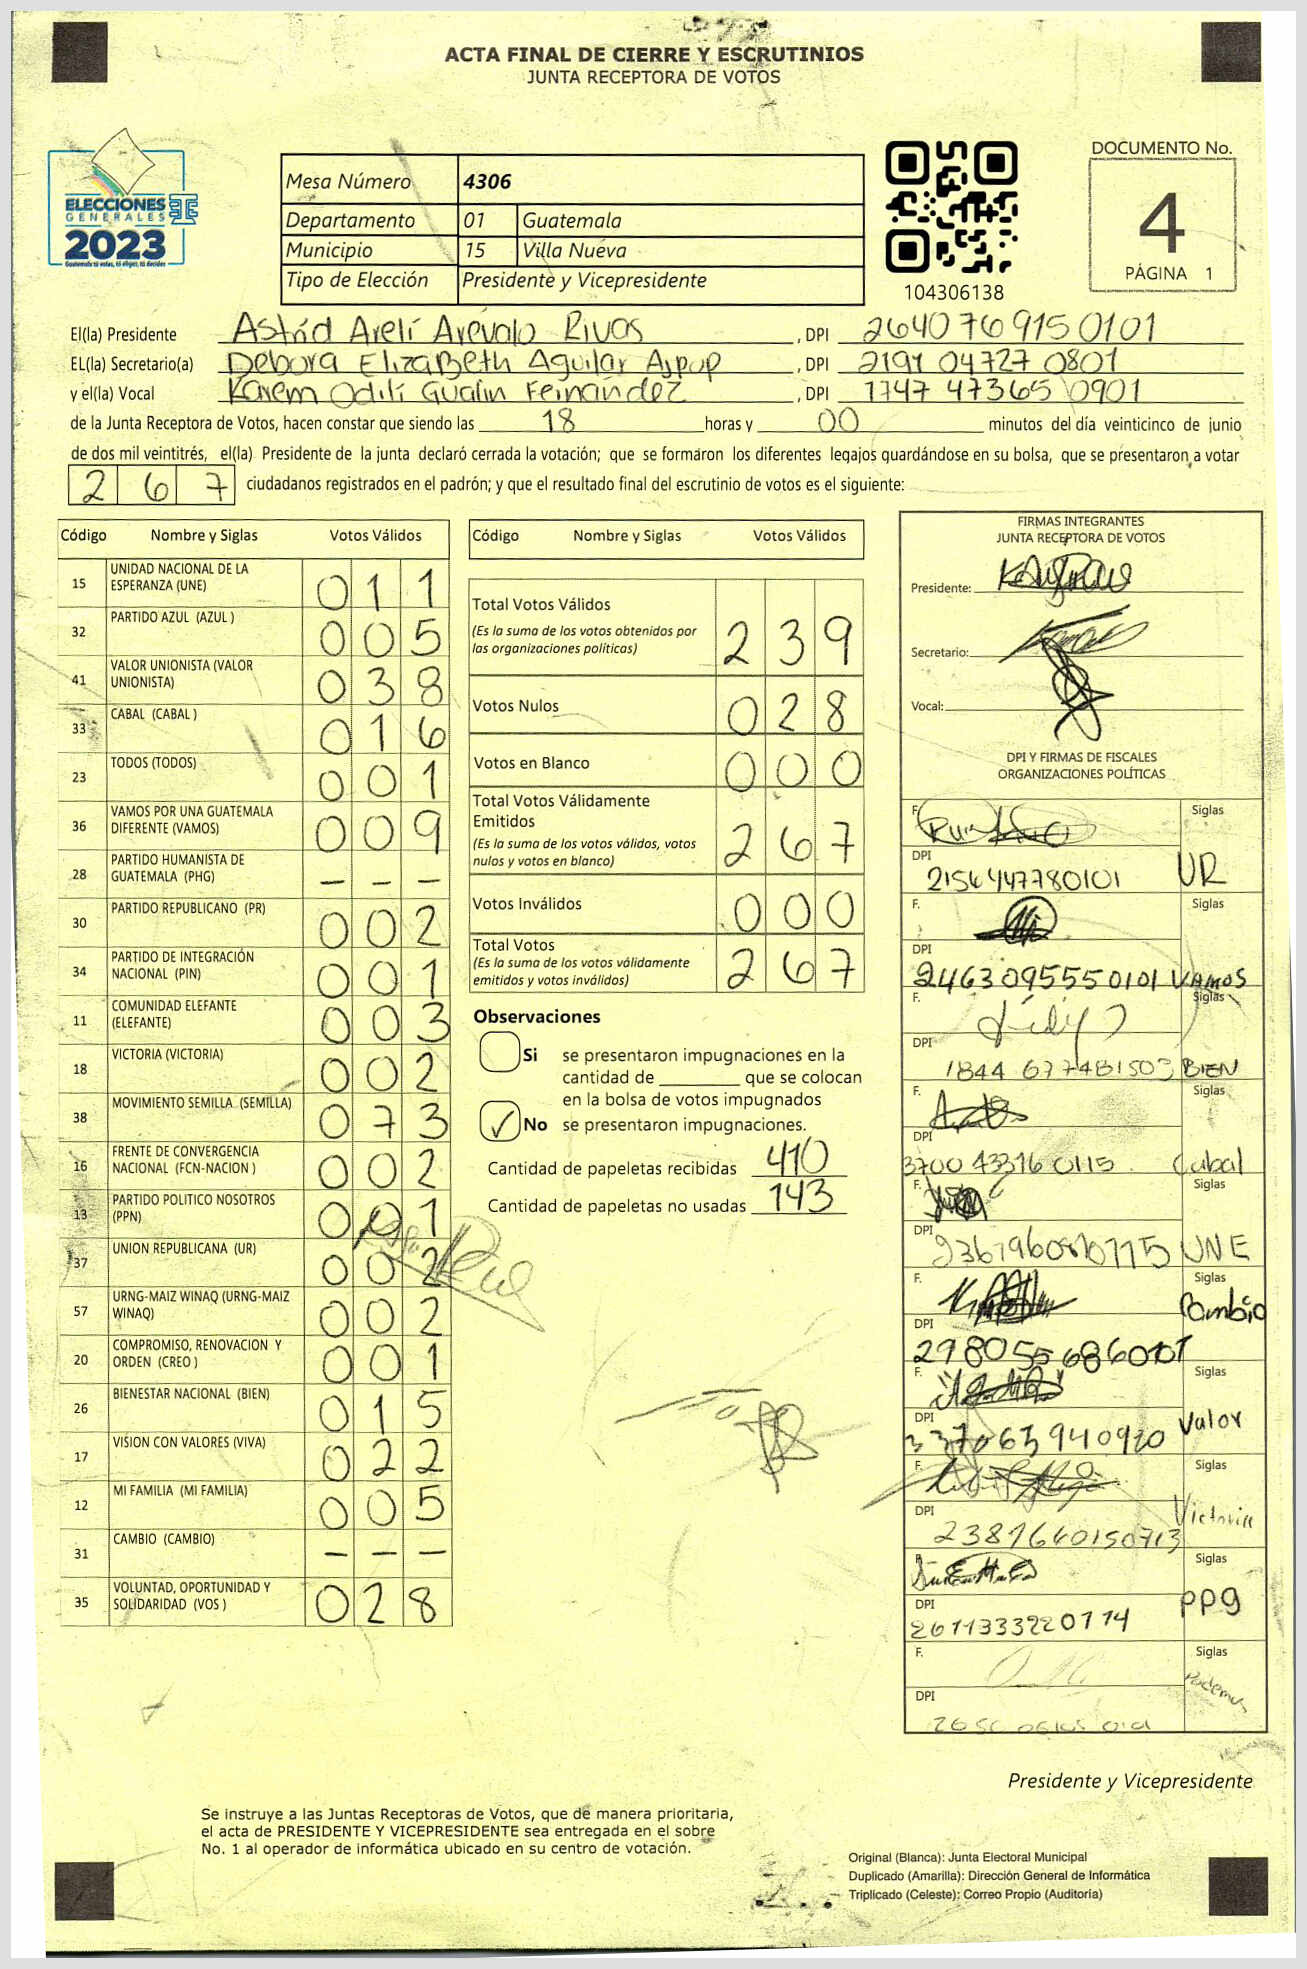 ACTA FINAL DE CIERRE Y ESCRUTINIOS
JUNTA RECEPTORA DE VOTOS
ELECCIONES
GENERALES
2023
Guatemala tú votas, tú eliges, tú decides
Mesa Número 4306
Departamento 01 Guatemala
Municipio 15 Villa Nueva
Tipo de Elección Presidente y Vicepresidente
104306138
DOCUMENTO No.
4
PÁGINA 1
El(la) Presidente Astrid Arelí Arévalo Rivas, DPI 2640 76915 0101
EL(la) Secretario(a) Debora Elizabeth Aguilar Ajpop, DPI 2191 04727 0801
y el(la) Vocal Karem Odilí Gualin Fernández, DPI 1747 47365 0901
de la Junta Receptora de Votos, hacen constar que siendo las 18 horas y 00 minutos del día veinticinco de junio
de dos mil veintitrés, el(la) Presidente de la junta declaró cerrada la votación; que se formaron los diferentes legajos guardándose en su bolsa, que se presentaron a votar
267 ciudadanos registrados en el padrón; y que el resultado final del escrutinio de votos es el siguiente:
Código Nombre y Siglas Votos Válidos
15 UNIDAD NACIONAL DE LA ESPERANZA (UNE) 011
32 PARTIDO AZUL (AZUL ) 005
41 VALOR UNIONISTA (VALOR UNIONISTA) 038
33 CABAL (CABAL ) 016
23 TODOS (TODOS) 001
36 VAMOS POR UNA GUATEMALA DIFERENTE (VAMOS) 009
28 PARTIDO HUMANISTA DE GUATEMALA (PHG) — — —
30 PARTIDO REPUBLICANO (PR) 002
34 PARTIDO DE INTEGRACIÓN NACIONAL (PIN) 001
11 COMUNIDAD ELEFANTE (ELEFANTE) 003
18 VICTORIA (VICTORIA) 002
38 MOVIMIENTO SEMILLA (SEMILLA) 073
16 FRENTE DE CONVERGENCIA NACIONAL (FCN-NACION ) 002
13 PARTIDO POLITICO NOSOTROS (PPN) 001
37 UNION REPUBLICANA (UR) 002
57 URNG-MAIZ WINAQ (URNG-MAIZ WINAQ) 002
20 COMPROMISO, RENOVACION Y ORDEN (CREO ) 001
26 BIENESTAR NACIONAL (BIEN) 015
17 VISION CON VALORES (VIVA) 022
12 MI FAMILIA (MI FAMILIA) 005
31 CAMBIO (CAMBIO) — — —
35 VOLUNTAD, OPORTUNIDAD Y SOLIDARIDAD (VOS ) 028
Código Nombre y Siglas Votos Válidos
Total Votos Válidos 239
(Es la suma de los votos obtenidos por
las organizaciones políticas)
Votos Nulos 028
Votos en Blanco 000
Total Votos Válidamente
Emitidos 267
(Es la suma de los votos válidos, votos
nulos y votos en blanco)
Votos Inválidos 000
Total Votos 267
(Es la suma de los votos válidamente
emitidos y votos inválidos)
Observaciones
Si se presentaron impugnaciones en la
cantidad de ________ que se colocan
en la bolsa de votos impugnados
✓ No se presentaron impugnaciones.
Cantidad de papeletas recibidas 410
Cantidad de papeletas no usadas 143
FIRMAS INTEGRANTES
JUNTA RECEPTORA DE VOTOS
Presidente:
Secretario:
Vocal:
DPI Y FIRMAS DE FISCALES
ORGANIZACIONES POLÍTICAS
F. Siglas
DPI 2156447780101 UR
F. Siglas
DPI 2463095550101 VAMOS
F. Siglas
DPI 1844 677481503 BIEN
F. Siglas
DPI 3700 43316 0115 Cabal
F. Siglas
DPI UNE
F. Siglas
DPI Cambio
F. Siglas
DPI Valor
F. Siglas
DPI 2381660150713 Victoria
F. Siglas
DPI 2611333220114 PPg
F. Siglas
DPI Podemos
Presidente y Vicepresidente
Se instruye a las Juntas Receptoras de Votos, que de manera prioritaria,
el acta de PRESIDENTE Y VICEPRESIDENTE sea entregada en el sobre
No. 1 al operador de informática ubicado en su centro de votación.
Original (Blanca): Junta Electoral Municipal
Duplicado (Amarilla): Dirección General de Informática
Triplicado (Celeste): Correo Propio (Auditoría)